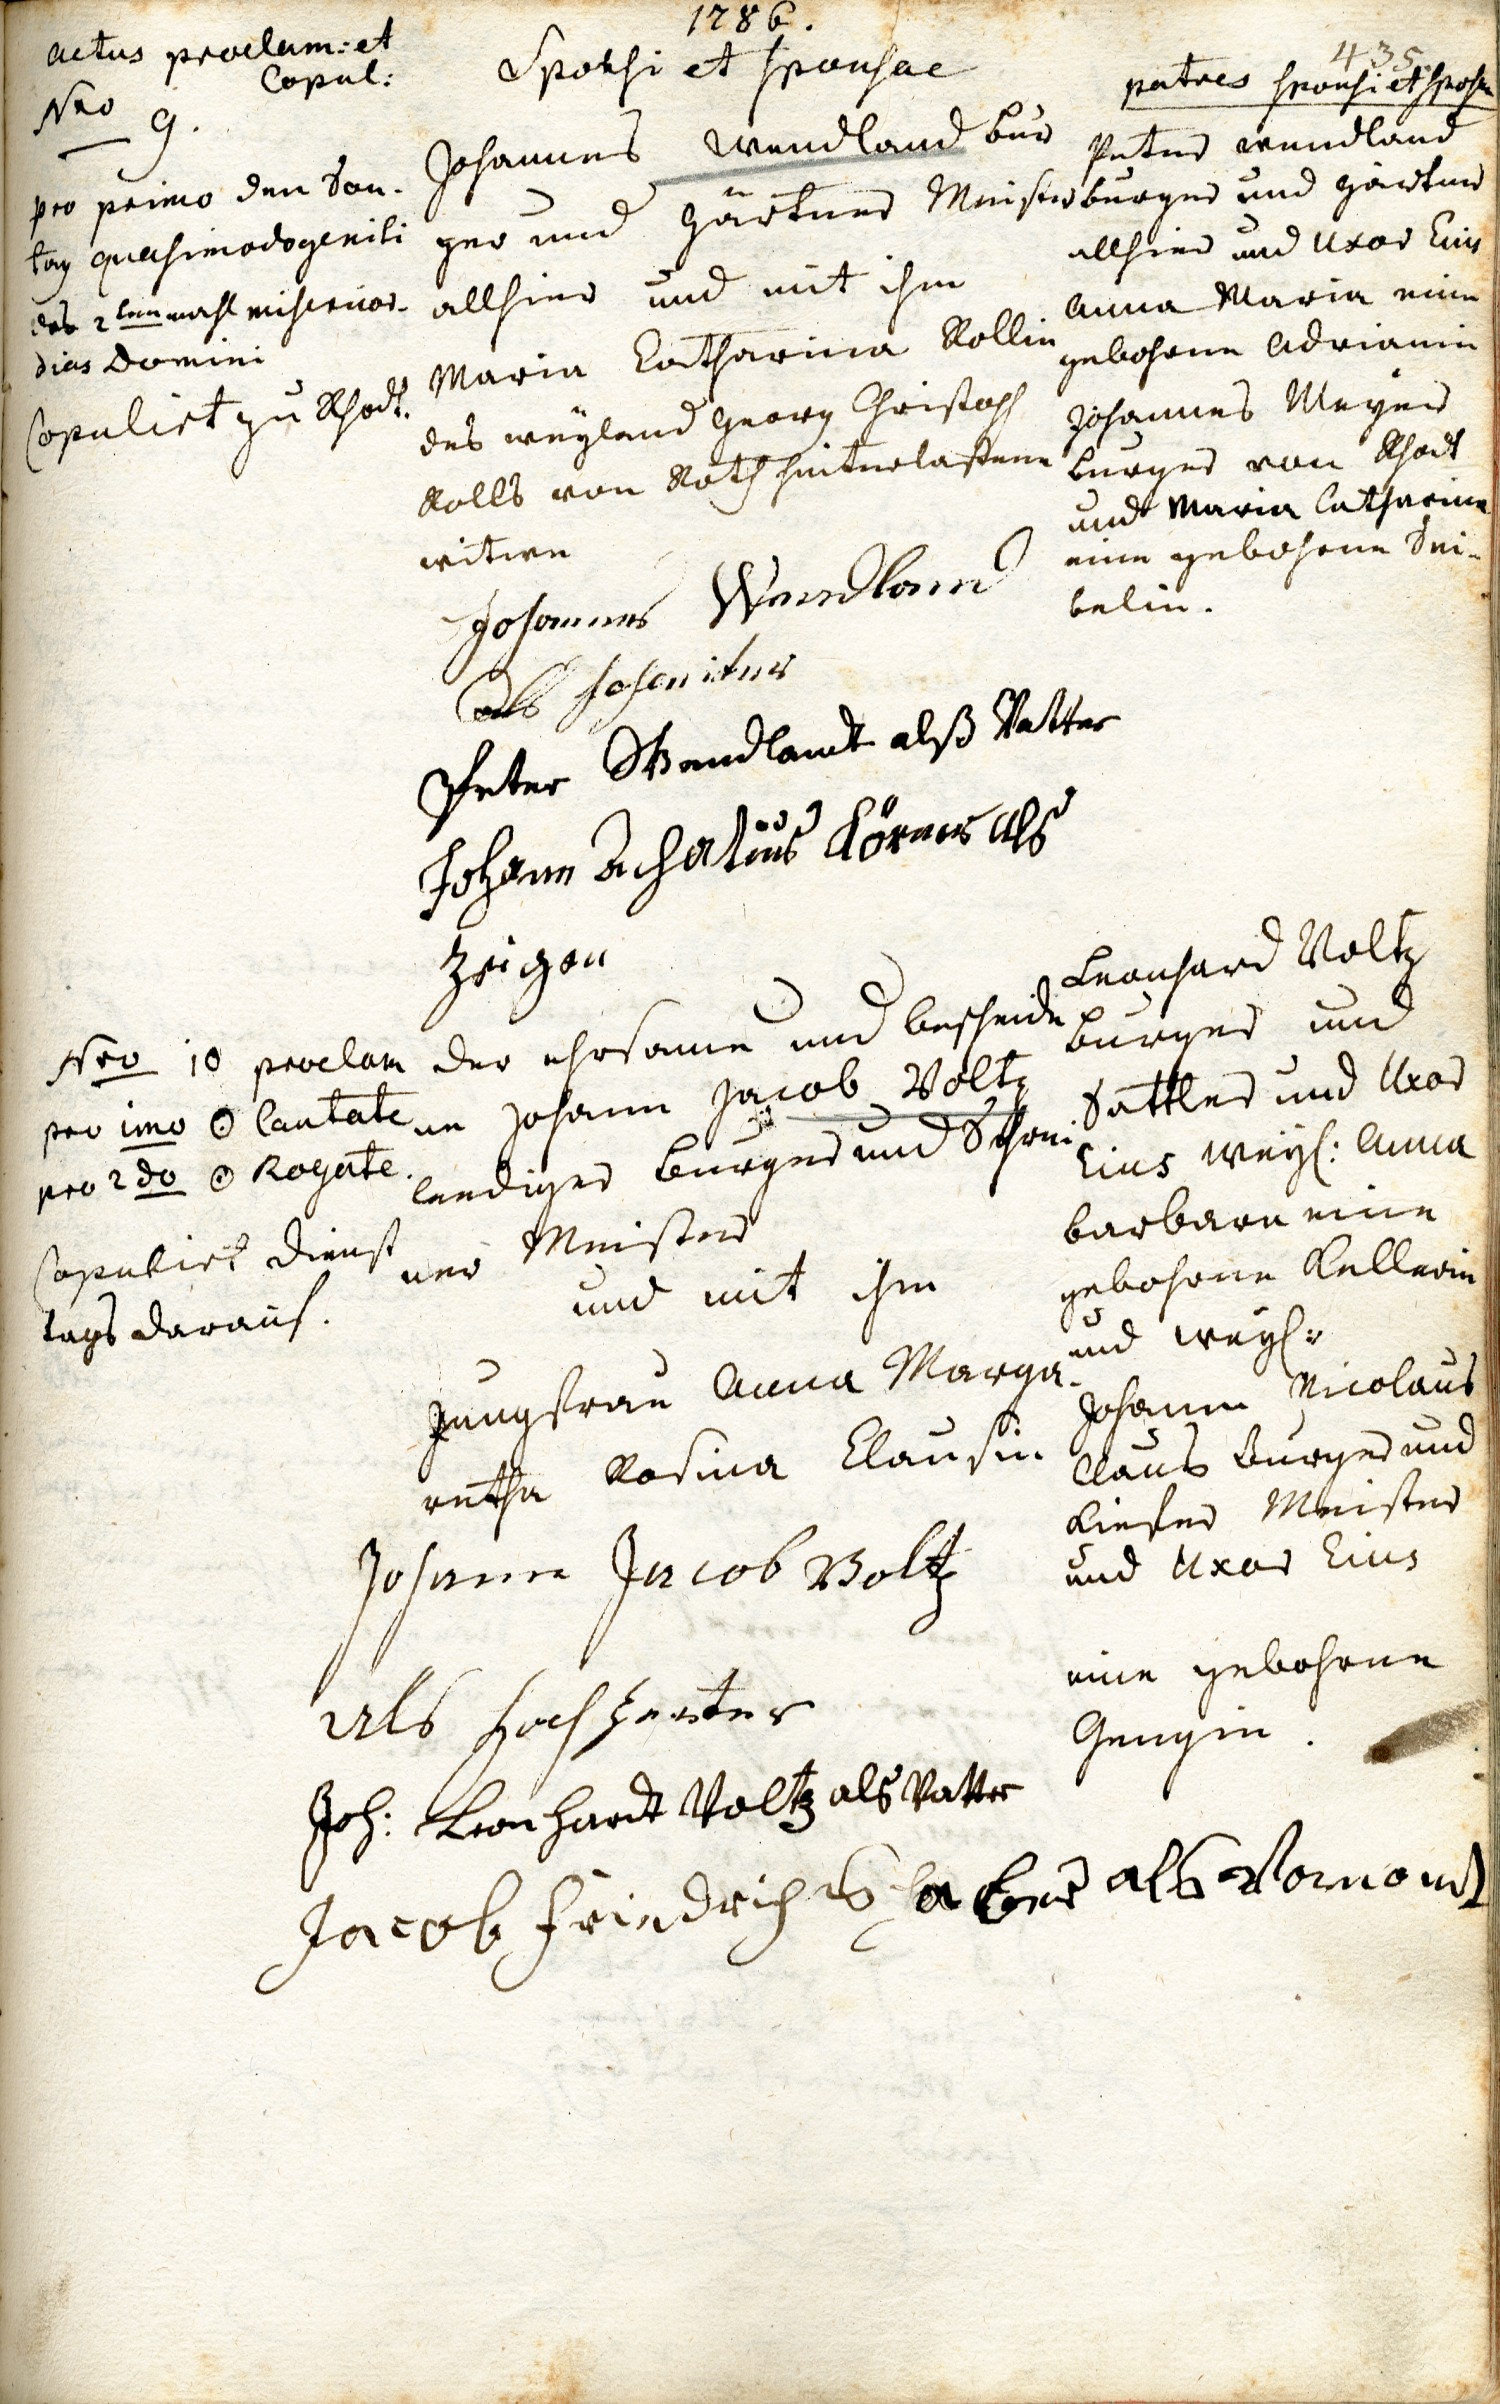 1786.
435
actus proclam: et
Copul:
Sponsi et sponsae
patres sponsi et spons
Nro 9.
pro primo den Son-
tag quasimodogeniti
des 2ten mahl misericor-
dias Domini
Copulirt zu Rhodt.
Johannes Wendland bur
ger und Gärtner Meister
allhier und mit ihm
Maria Catharina Rollin
des weyland Georg Christoph
Rolls von Roth hinterlaßene
witwe
Johannes Wendland
als
Peter Wendlandt alß Vatter
Johann Achatius Körner als
Zeigen
Peter wendland
burger und gärtner
allhier und Uxor Eius
Anna Maria eine
gebohrne Adrianin
Johannes Meyer
burger von Rhodt
und Maria Catharina
eine gebohrne Sei-
belin.
Nro 10 proclam
pro imo ⊙ Cantate
pro 2do ⊙ Rogate.
Copulirt Dienst
tags darauf.
der ehrsame und bescheide
ne Johann Jacob Voltz
leediger burger und Schrei
ner Meister
und mit ihm
Jungfrau Anna Marga-
retha Rosina Clausin
Johann Jacob Voltz
als Hochzeiter
Joh: Leonhardt Voltz als Vatter
Jacob Friedrich als Vormond
Leonhard Voltz
burger und
Sattler und Uxor
Eius weyl: Anna
barbara eine
gebohrne Kellerin
und weyl:
Johann Nicolaus
Claus burger und
Kiefer Meister
und Uxor Eius
eine gebohrne
Gengin.